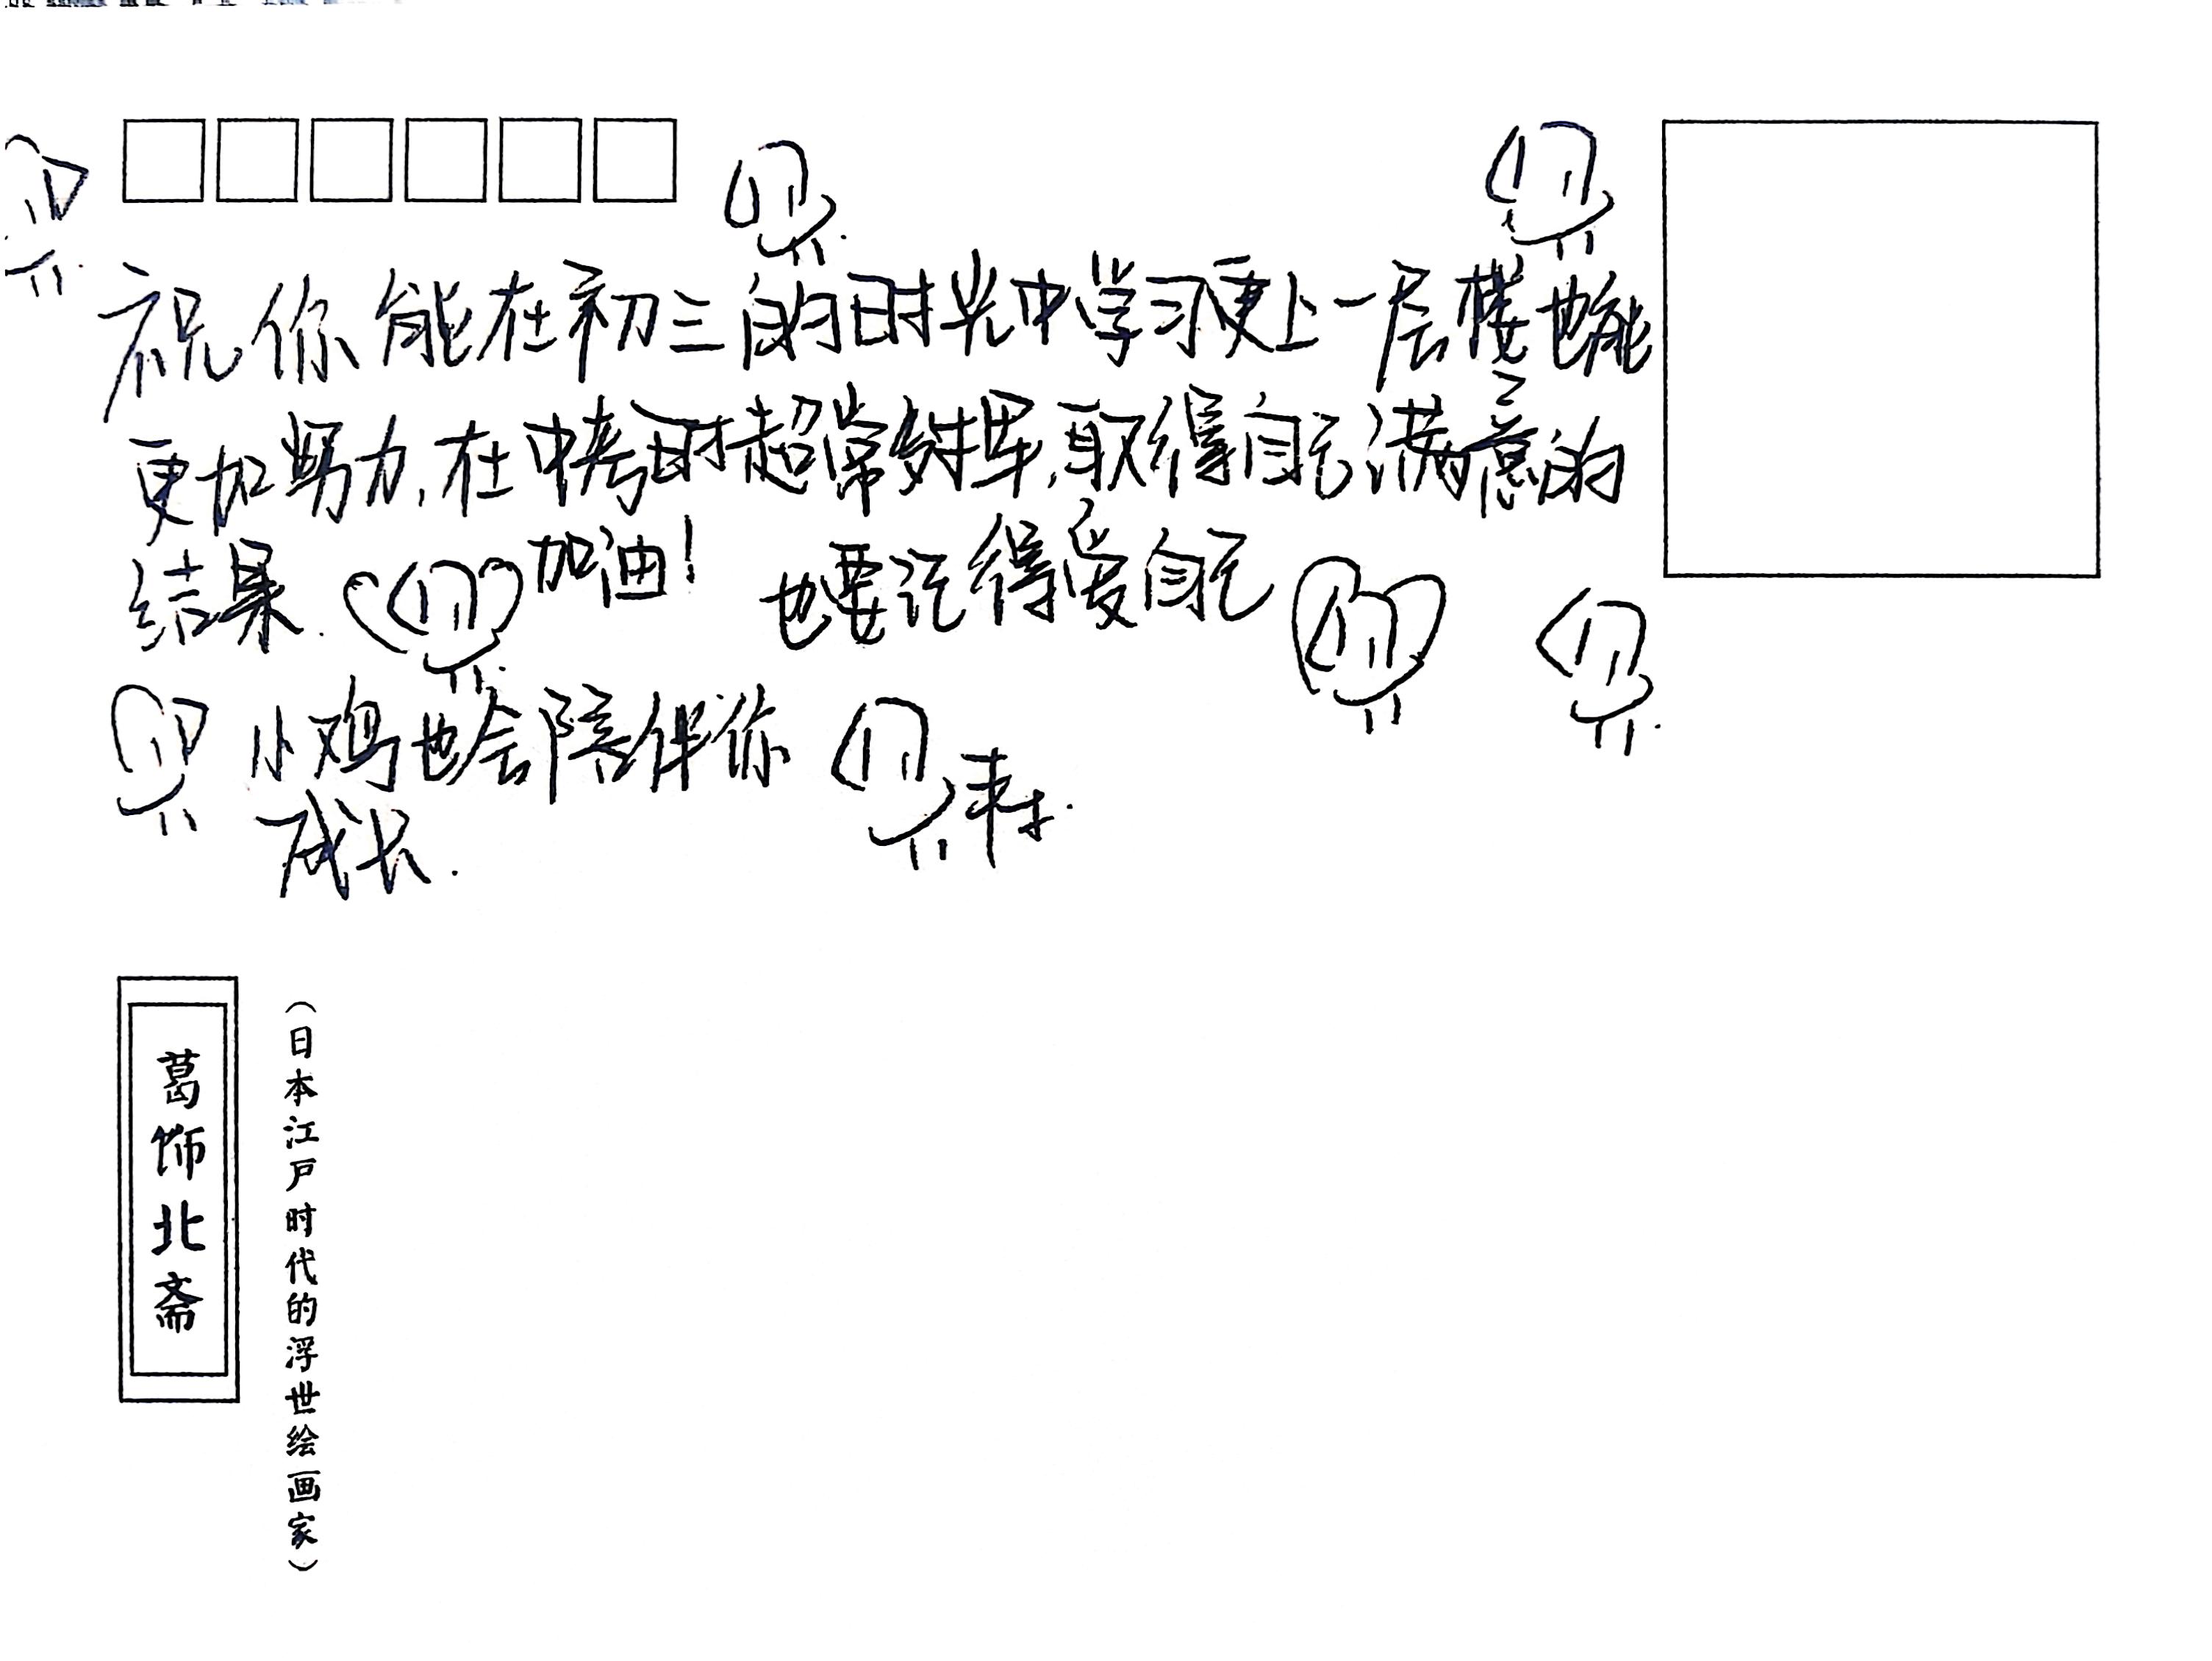 祝你能在初三的时光中学习更上一层楼也能
更加努力,在中考时超常发挥,取得自己满意的
结果. 加油! 也要记得爱自己
小鸡也会陪伴你
成长.
葛饰北斋
(日本江户时代的浮世绘画家)